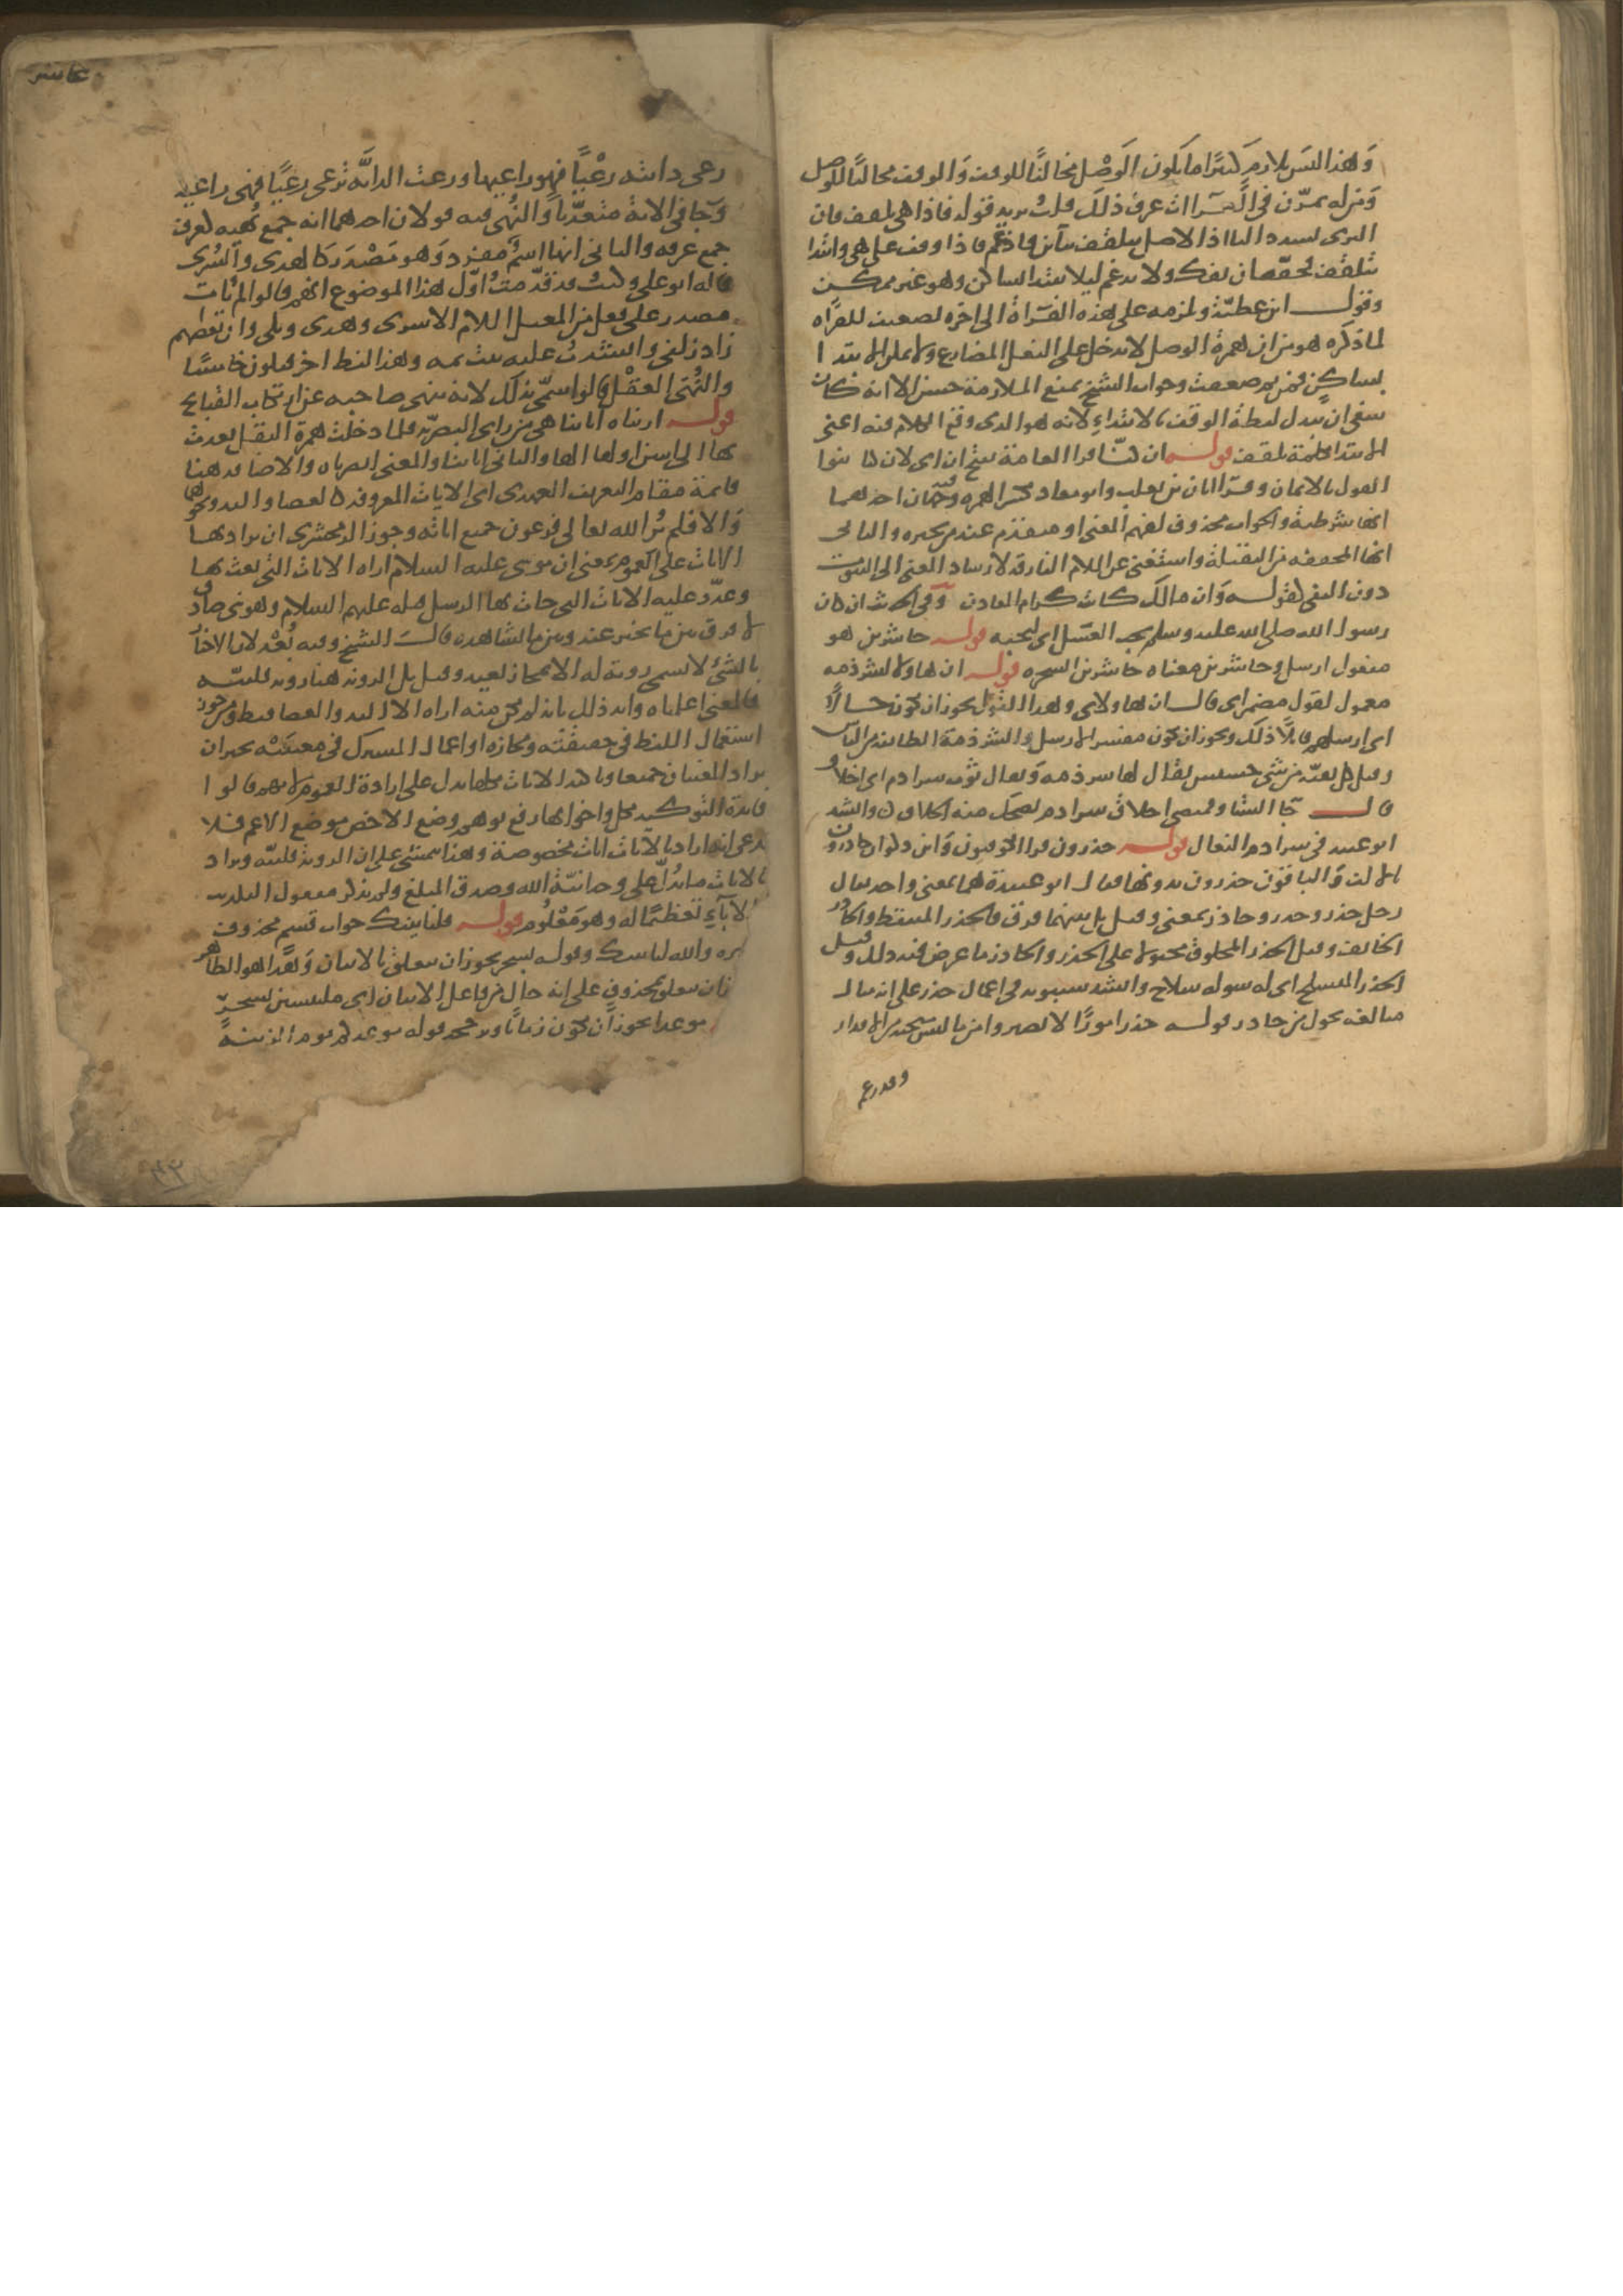 وهذا ليس بلازم كثيرا ما يكون الوصل مخالفا للوقف والوقف مخالفا للوصل
ومن له تمرن في القراات عرف ذلك قلت يريد قوله فاذا هي تلقف فان
البزي يشدد التا اذ الاصل تتلقف بتاين فادغم فاذا وقف على هي وابتدا
تتلقف فحقه ان يفك ولا يدغم ليلا يبتدا بساكن وهو غير ممكن
وقول ابن عطية ويلزمه على هذه القراة الى اخره تضعيف للقراه
لما ذكره هو من ان همزة الوصل لا تدخل على الفعل المضارع ولا يمكن الابتدا
بساكن فمن ثم ضعفت وجواب الشيخ بمنع الملازمة حسن الا انه كان
ينبغي ان يبدل لفظة الوقف بالابتداء لانه هو الذي وقع الكلام فيه اعني
الابتدا بكلمة تلقف قوله ان كنا قرا العامة بفتح ان اي لان كنا بنوا
القول بالايمان وقرا ابان بن تغلب وابو معاذ بكسر الهمزه وفيه وجهان احدهما
انها شرطية والجواب محذوف لفهم المعنى او متقدم عند من يجيزه والثاني
انها المخففه من الثقيلة واستغني عن اللام الفارقه لارشاد المعنى الى الثبوت
دون النفي كقوله وان مالك كانت كرام المعادن وفي الحديث ان كان
رسول الله صلى الله عليه وسلم يحب العسل اي ليحبه قوله حاشرين هو
مفعول ارسل وحاشرين معناه حاشرين السحره قوله ان هاولا لشرذمه
معمول لقول مضمر اي قال ان هاولاي وهذا القول يجوز ان يكون حالا
اي ارسلهم قايلا ذلك ويجوز ان يكون مفسرا لارسل والشرذمة الطايفه من الناس
وقيل كل بقية من شي خسيس يقال لها شرذمه ويقال ثوب شراذم اي اخلاق
قال جا الشتا وقميصي اخلاق شراذم يضحك منه الخلاق وانشد
ابو عبيد في شراذم النعال قوله حذرون قرا الكوفيون وابن ذكوان حاذرون
بالالف والباقون حذرون بدونها فقال ابو عبيدة هما بمعنى واحد يقال
رجل حذر وحذر وحاذر بمعنى وقيل بل بينهما فرق فالحذر المتيقظ والحاذر
الخايف وقيل الحذر المخلوق مجبولا على الحذر والحاذر ما عرض فيه ذلك وقيل
الحذر المتسلح اي له شوكة سلاح وانشد سيبويه في اعمال حذر على انه مثال
مبالغه محول من حاذر قوله حذر امورا لا تضير وامن ما ليس منجيه من الاقدار
وقد زعم
عاشر
رعى دابته رعيا فهو راعيها ورعت الدابة ترعى رعيا فهي راعيه
وجا في الاية متعديا والنهى فيه قولان احدهما انه جمع نهيه كغرف
جمع غرفه والثاني انها اسم مفرد وهو مصدر كالهدى والسرى
قاله ابو علي وكنت قد قدمت اول هذا الموضوع انهم قالوا لم يات
مصدر على فعل من المعتل اللام الا سرى وهدى وبكى وان بعضهم
زاد لغى وانشدت عليه بيتا ثمه وهذا لفظ اخر فيكون خامسا
والنهى العقل قالوا سمي بذلك لانه ينهى صاحبه عن ارتكاب القبايح
قوله اريناه اياتنا هي من راى البصريه فلما دخلت همزة النقل تعدت
بها الى اثنين اولهما الها والثاني اياتنا والمعنى ابصرناه والاضافه هنا
قايمة مقام التعريف العهدي اي الايات المعروفه كالعصا واليد ونحوها
والا فلم ير الله تعالى فرعون جميع اياته وجوز الزمخشري ان يراد بها
الايات على العموم بمعنى ان موسى عليه السلام اراه الايات التي بعث بها
وعدد عليه الايات التي جات بها الرسل قبله عليهم السلام وهو نبي صادق
لا فرق بين ما يخبر عنه وبين ما يشاهد به قال الشيخ وفيه بعد لان الاخبار
بالشي لا يسمى روية له الا بمجاز بعيد وقيل بل الرويه هنا رويه قلبيه
فالمعنى اعلمناه وايد ذلك بانه لم يكن منه اراه الا اليد والعصا فقط ومن جوز
استعمال اللفظ في حقيقته ومجازه او اعمال المشترك في معنييه يجيز ان
يراد المعنيان جميعا وتاكيد الايات بكلها يدل على ارادة العموم لانهم قالوا
فايدة التوكيد بكل واخواتها رفع توهم وضع الاخص موضع الاعم فلا
يدعى انه اراد بالايات ايات مخصوصة وهذا يتمشى على ان الرويه قلبيه ويراد
بالايات ما يدل على وحدانية الله وصدق المبلغ ولم يذكر مفعول التكذيب
والاباء تعظيما له وهو معلوم قوله فلناتينك جواب قسم محذوف
تقديره والله لناتينك وقوله بسحر يجوز ان يتعلق بالاتيان وهذا هو الظاهر
فان يتعلق بمحذوف على انه حال من فاعل الاتيان اي ملتبسين بسحر
موعدا يجوز ان يكون زمانا ويرجحه قوله موعدكم يوم الزينة
٣٢